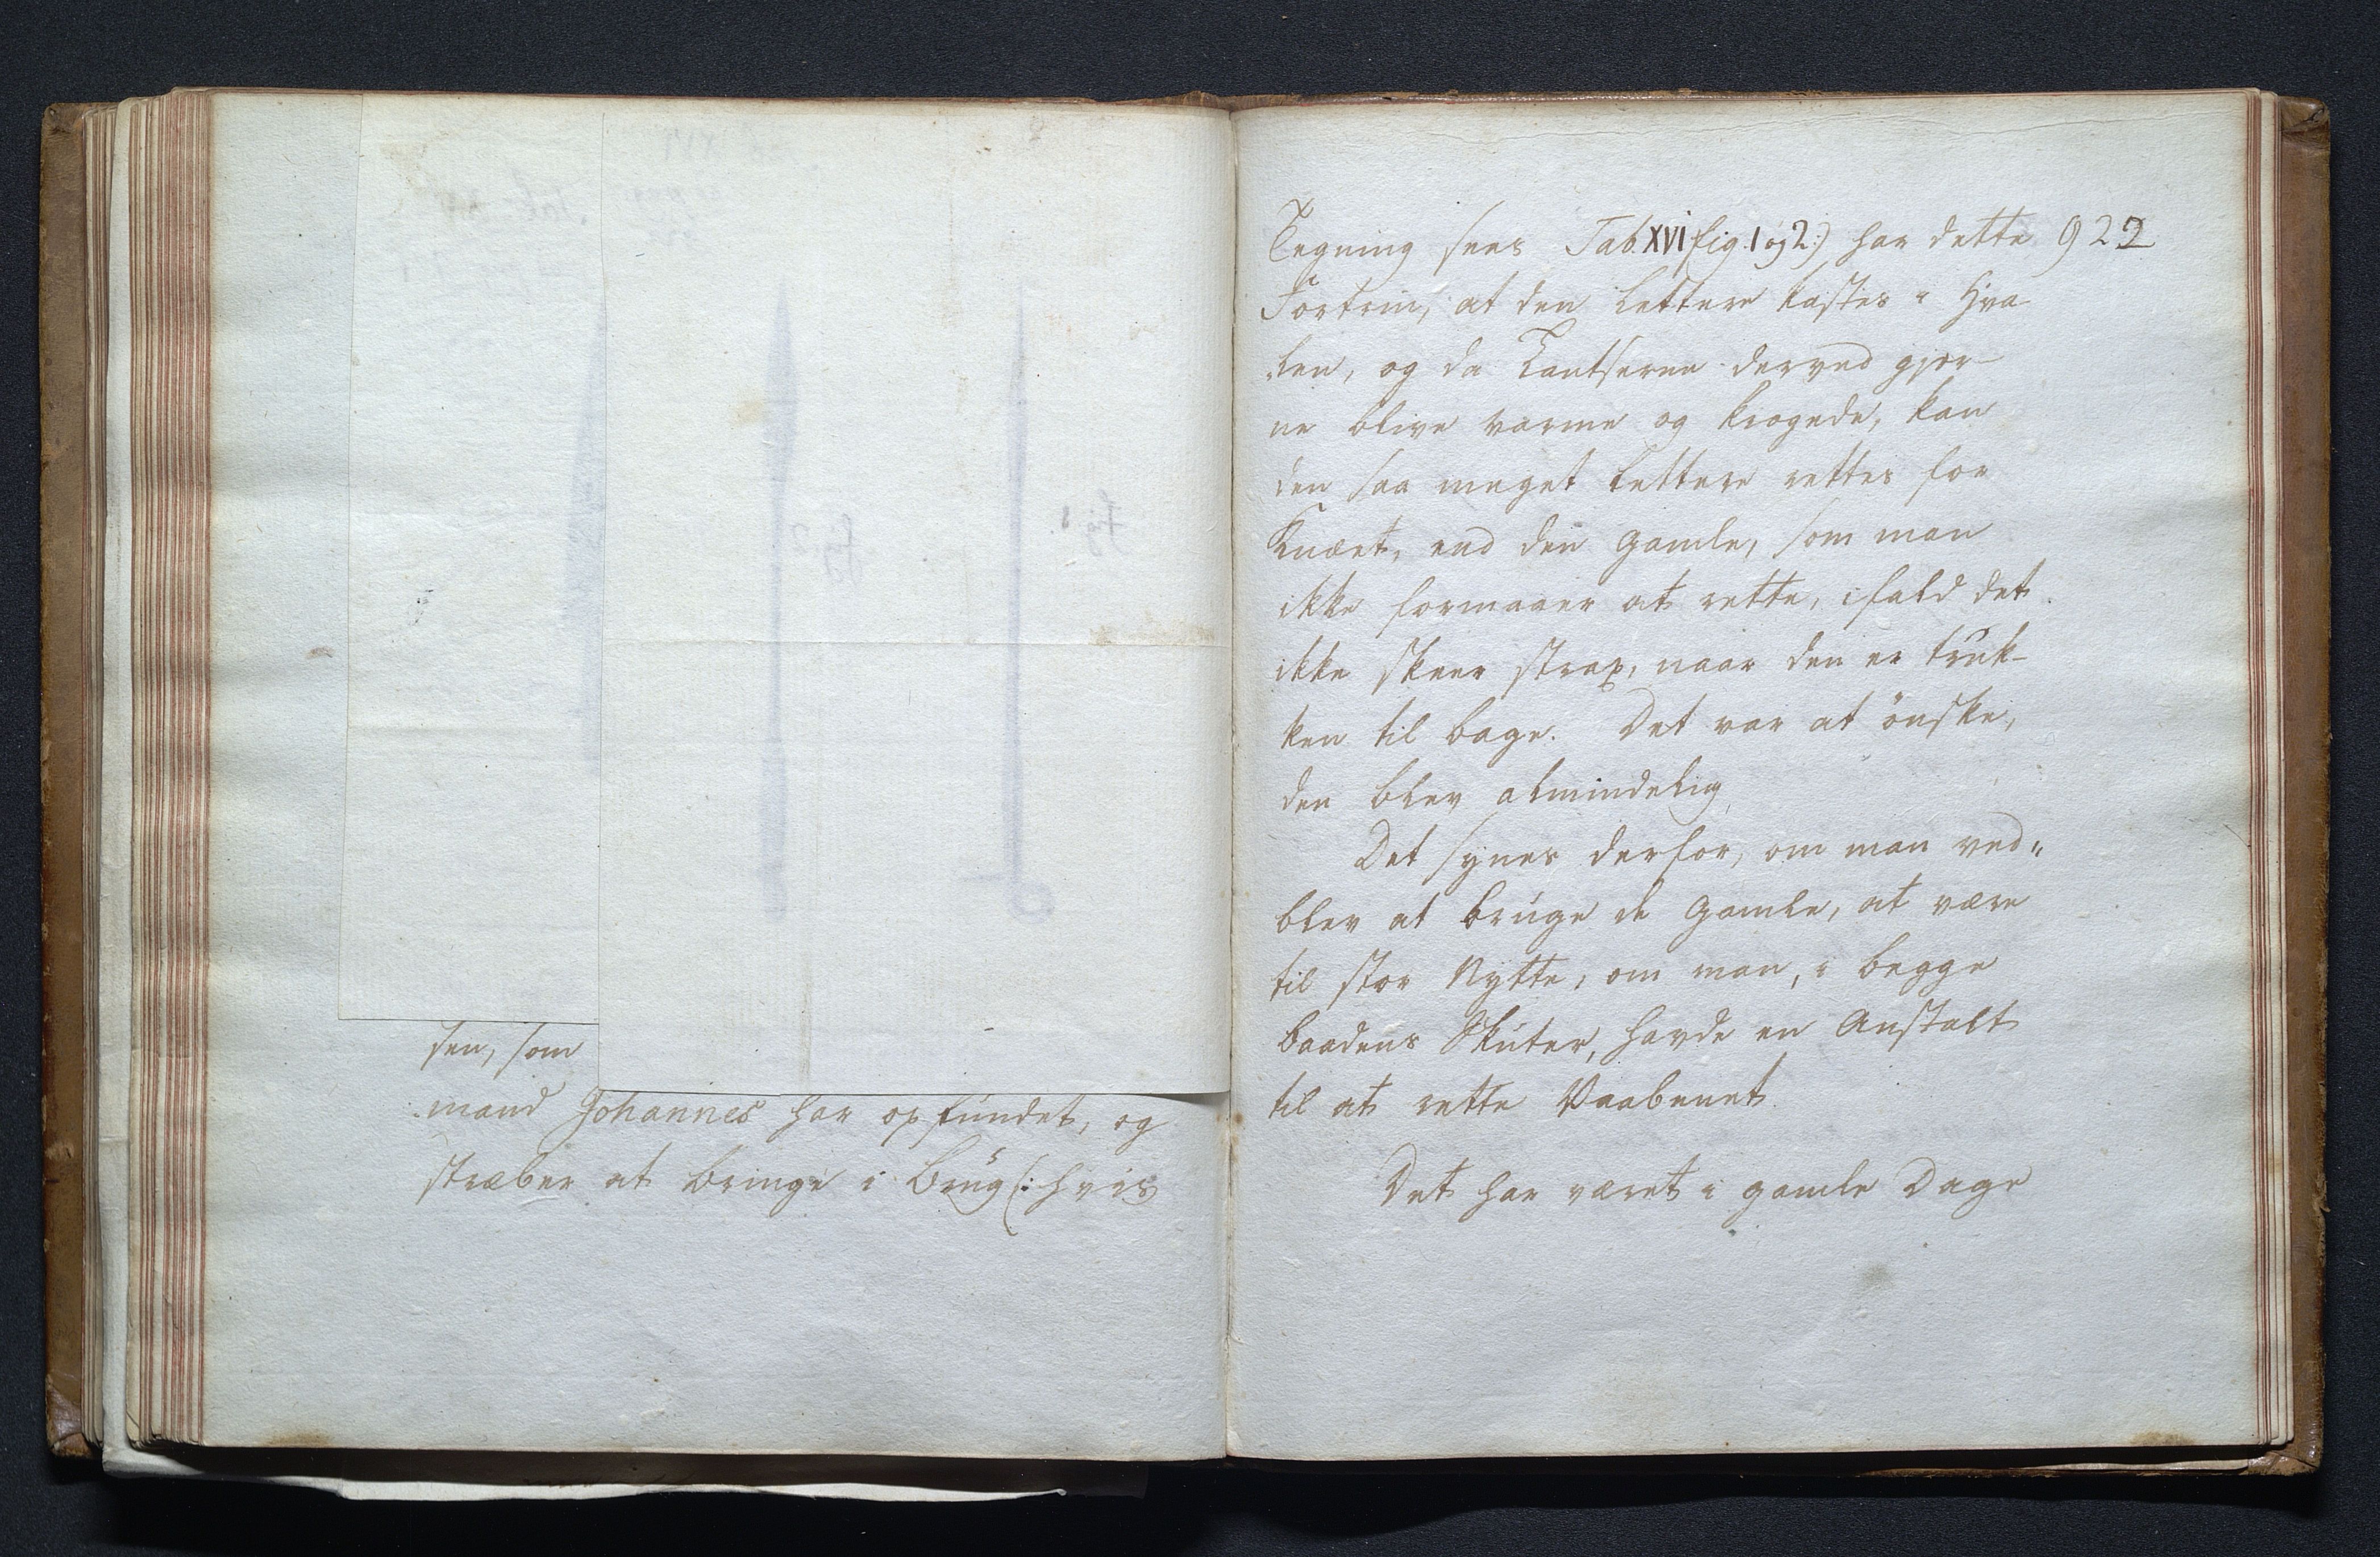 sen, som
mand Johannes har opfundet, og
stræber at bringe i Brug (: hvis
Tegning sees Tab. XVI fig. 1 og 2:) har dette 922
Fortrin, at den lettere kastes i Hva
len, og da Lantserne derved gjer-
ne blive varme og krogede, kan
den saa meget lettere rettes for
Knæet, end den gamle, som man
ikke formaaer at rette, ifald det
ikke skeer strax, naar den er truk-
ken til bage. Det var at önske,
den blev almindelig
Det synes derfor, om man ved„
blev at bruge de gamle, at være
til stor Nytte, om man, i begge
baadens Skuter, havde en Anstalt
til at rette Vaabenet
Det har været i gamle Dage